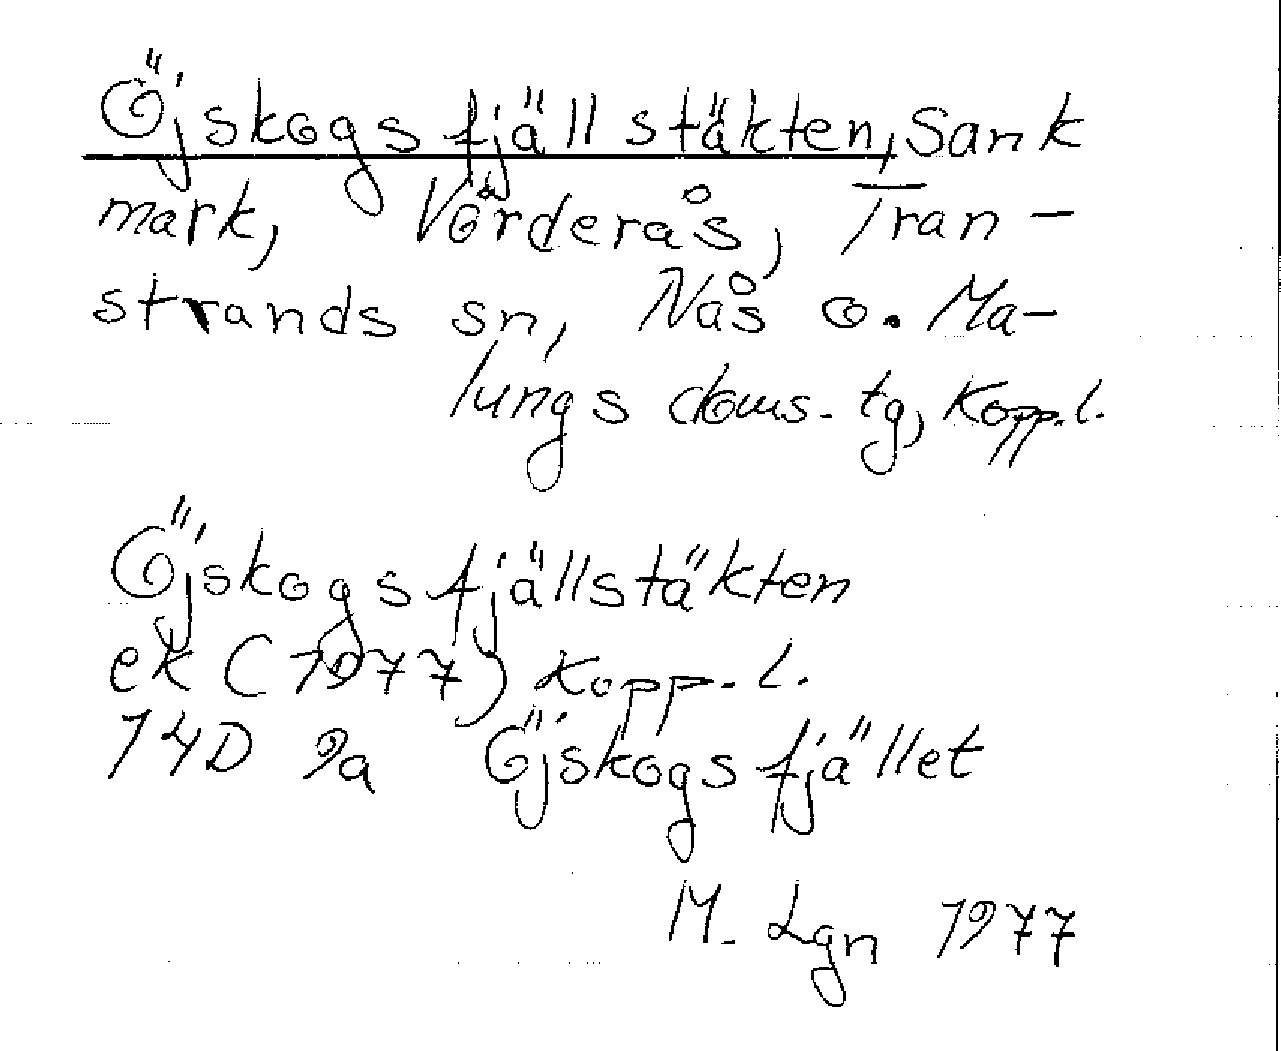 Öjskogsfjällstäkten, Sank
mark, Vörderås, Tran-
strands sn, Nås o. Ma-
lungs doms. tg, Kopp. l.
Öjskogsfjällstäkten
ek (1977) Kopp. l.
14D 9a Öjskogsfjället
M. Lgn 1977